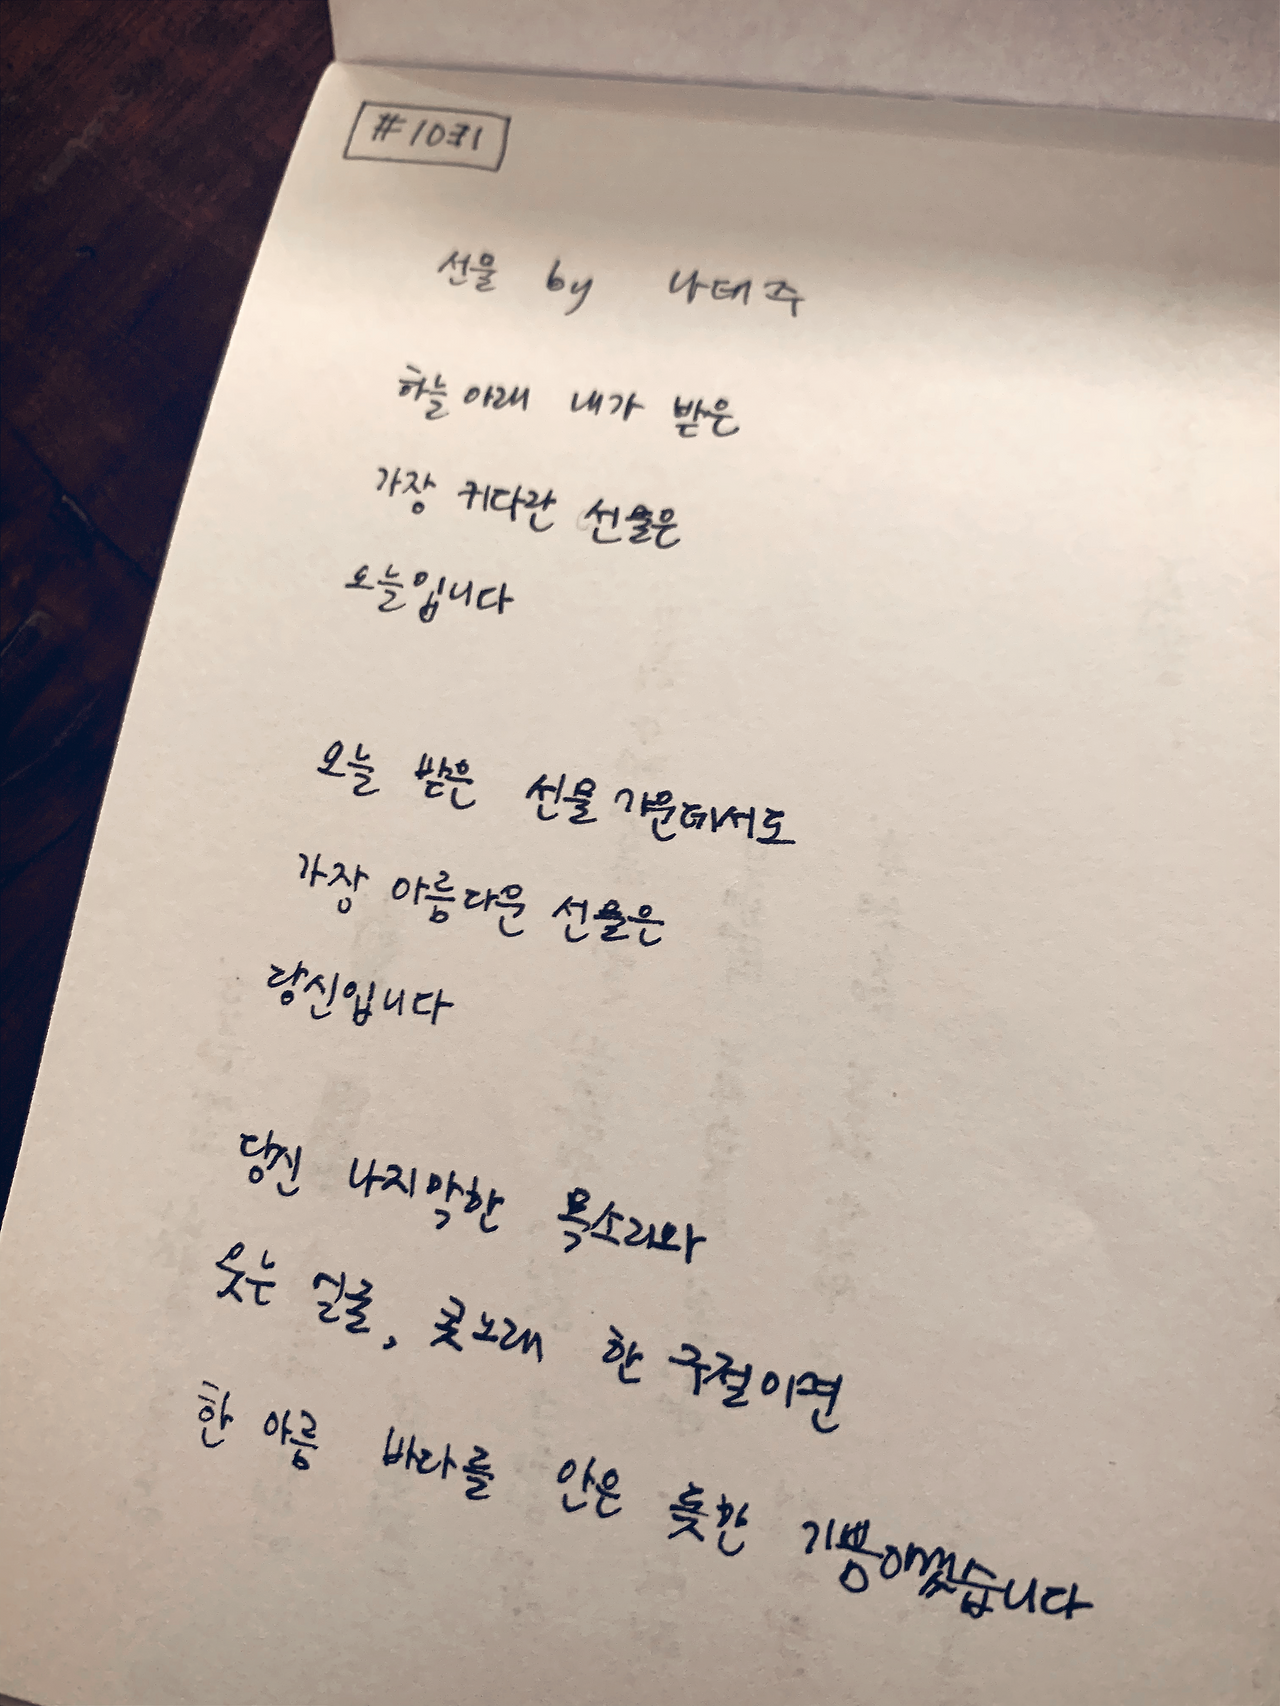 #1031
선물 by 나태주
하늘 아래 내가 받은
가장 커다란 선물은
오늘입니다
오늘 받은 선물 가운데서도
가장 아름다운 선물은
당신입니다
당신 나지막한 목소리와
웃는 얼굴, 콧노래 한 구절이면
한 아름 바다를 안은 듯한 기쁨이겠습니다